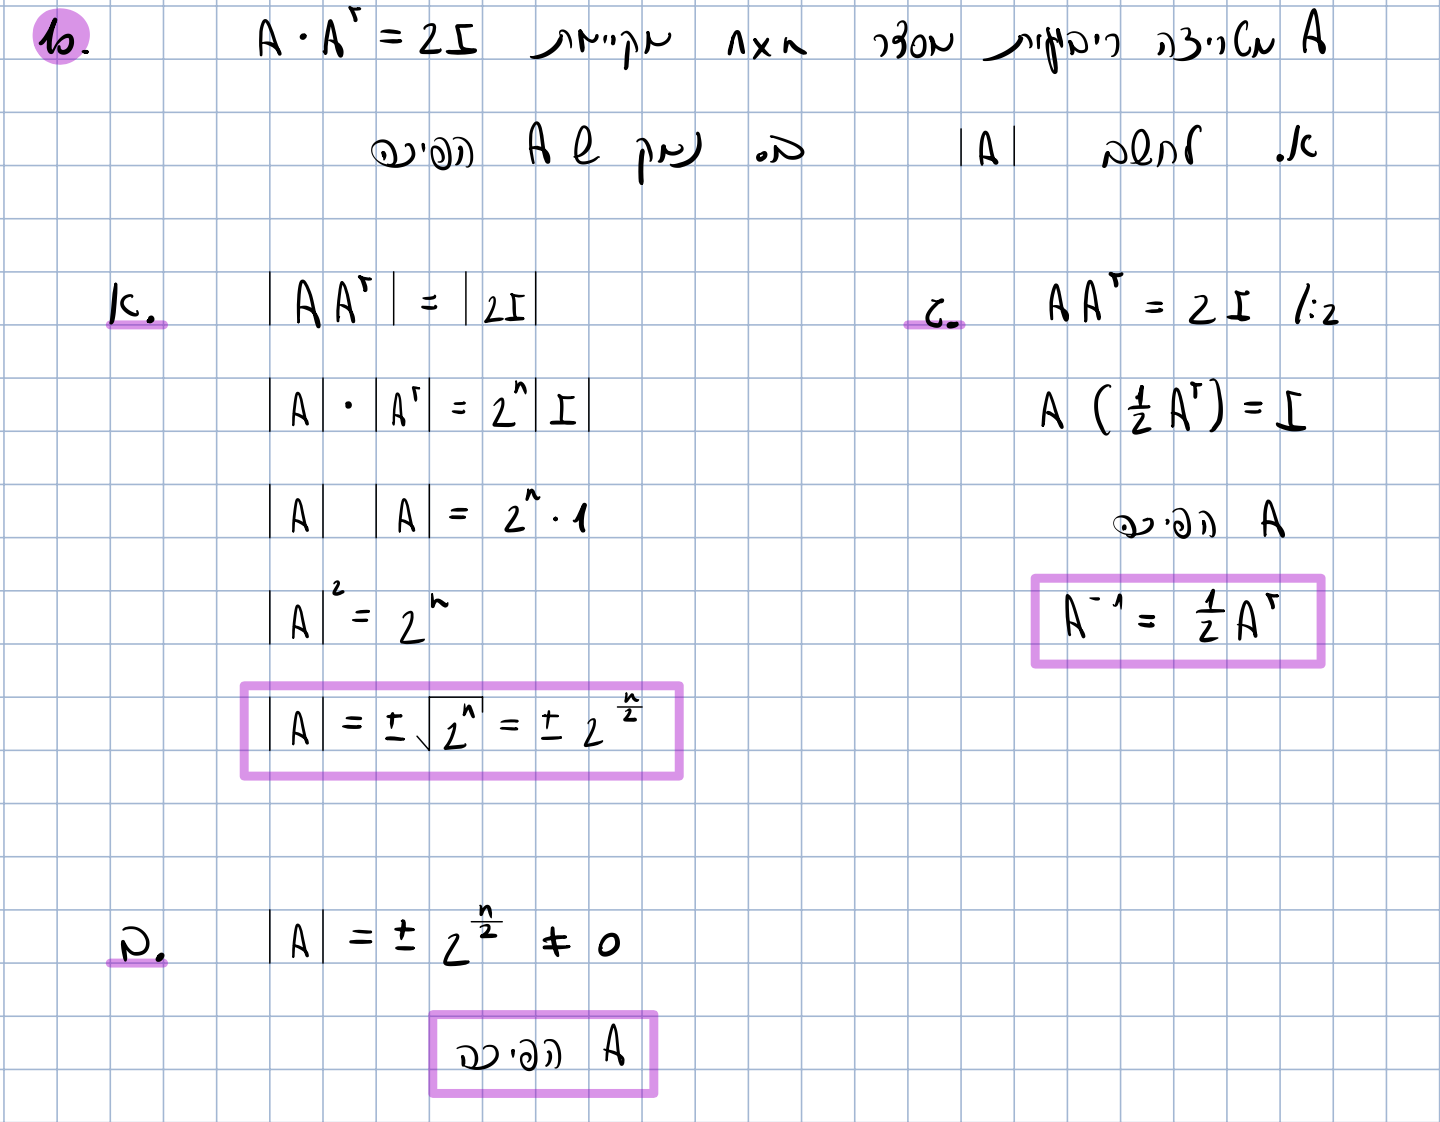 .b A מטריצה ריבועית מסדר n×n מקיימת A · Aᵀ = 2I
א. לחשב |A| ב. נמק ש A הפיכה
א. |A Aᵀ| = |2I|
|A| · |Aᵀ| = 2ⁿ |I|
|A| |A| = 2ⁿ · 1
|A|² = 2ⁿ
|A| = ± √2ⁿ = ± 2^(n/2)
ב. |A| = ± 2^(n/2) ≠ 0
A הפיכה
ג. A Aᵀ = 2I /:2
A (1/2 Aᵀ) = I
A הפיכה
A⁻¹ = 1/2 Aᵀ